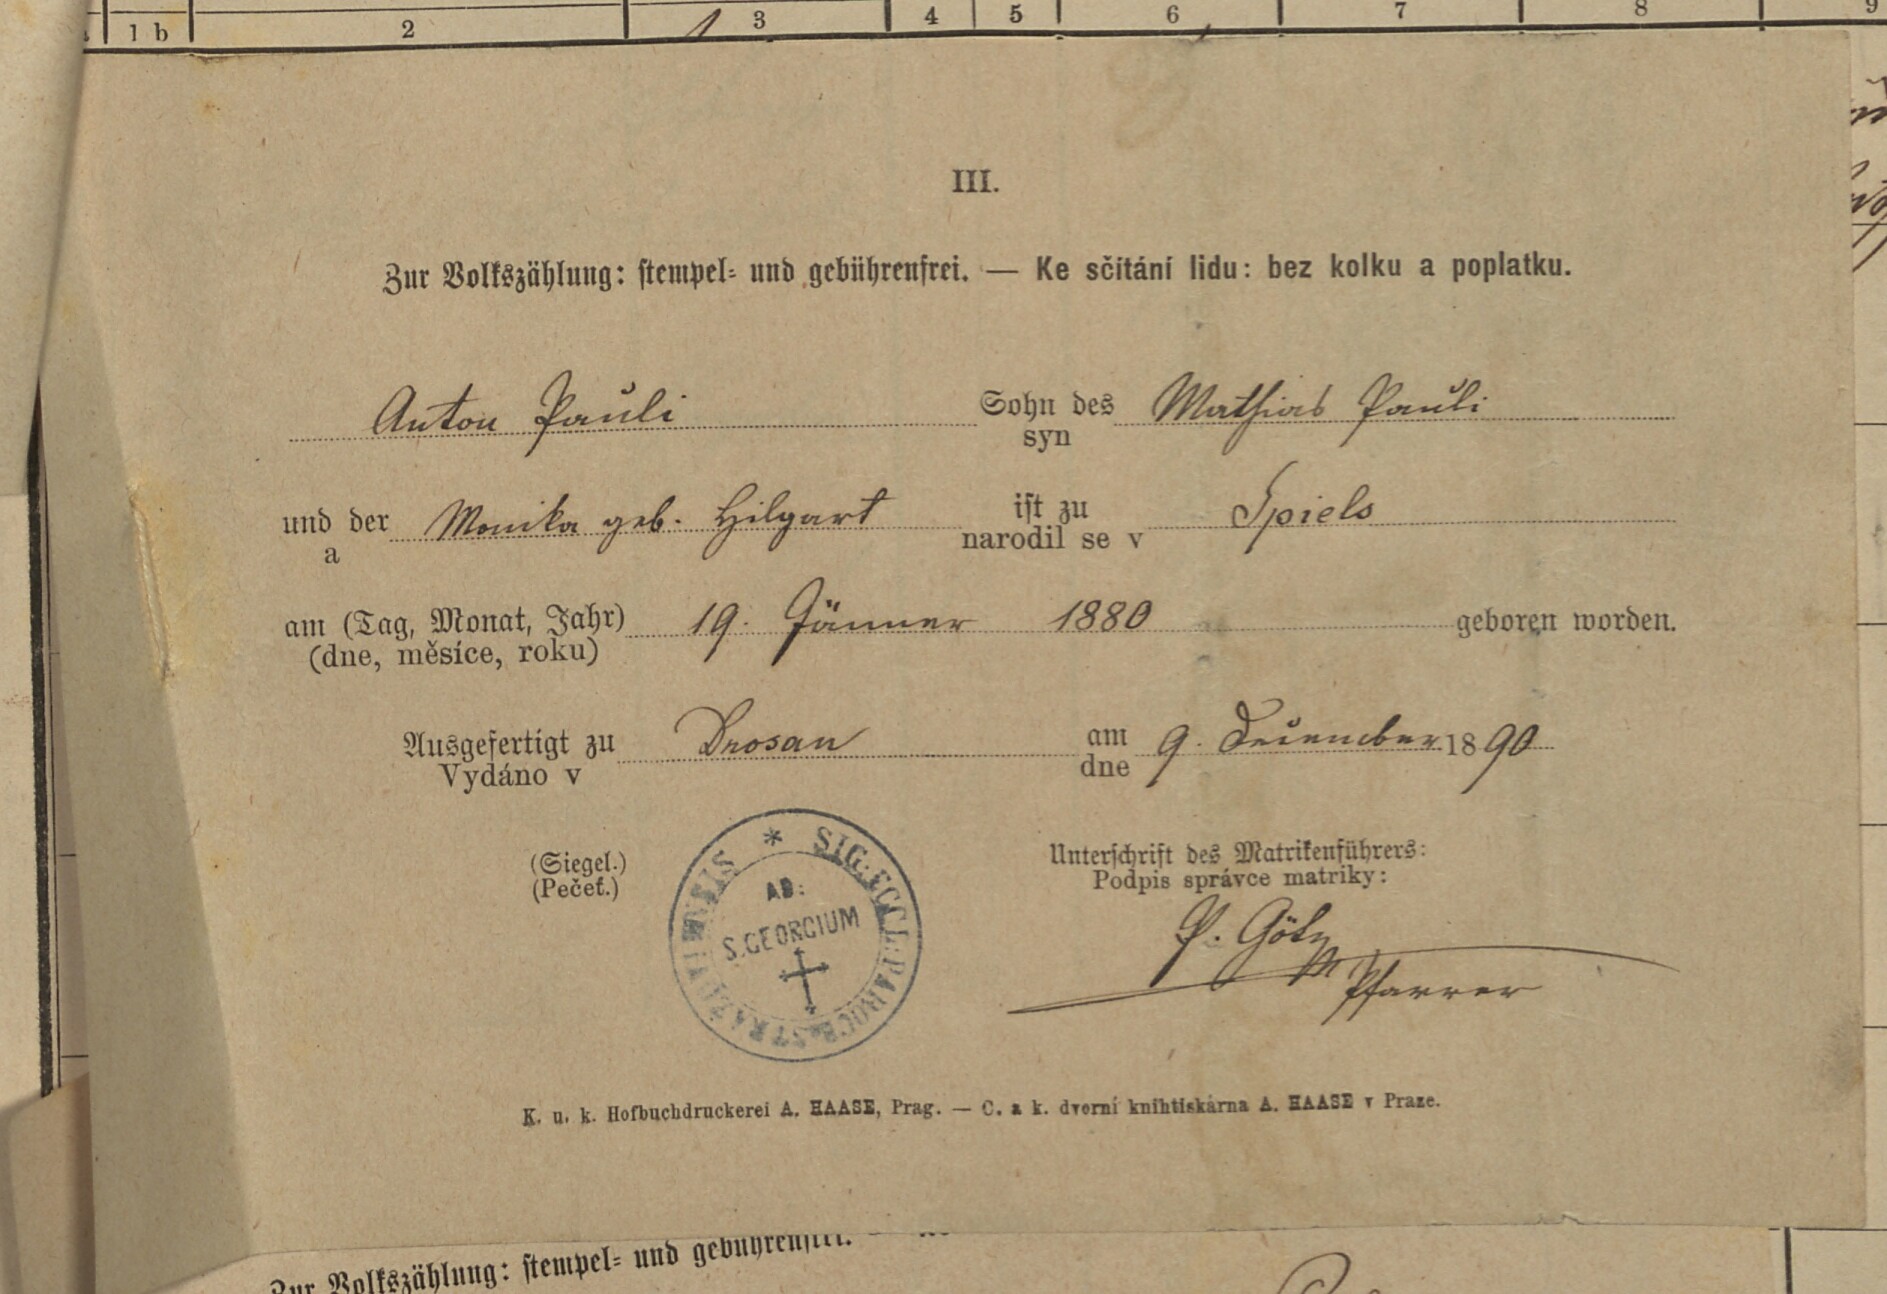 1 b 2 3 4 5 6 7 8 9
III.
Zur Volkszählung: stempel- und gebührenfrei. — Ke sčítání lidu: bez kolku a poplatku.
Anton Pauli Sohn des Mathias Pauli
syn
und der Monika geb. Hilgart ist zu Spiels
a narodil se v
am (Tag, Monat, Jahr) 19. Jänner 1880 geboren worden.
(dne, měsíce, roku)
Ausgefertigt zu Drosau am 9. December 1890
Vydáno v dne
(Siegel.)
(Pečeť.)
* SIG. ECCL. PAROCH.
AD:
S. GEORGIUM
Unterschrift des Matrikenführers:
Podpis správce matriky:
P. Götz
Pfarrer
K. u. k. Hofbuchdruckerei A. HAASE, Prag. — C. a k. dvorní knihtiskárna A. HAASE v Praze.
Zur Volkszählung: stempel- und gebührenfrei. —